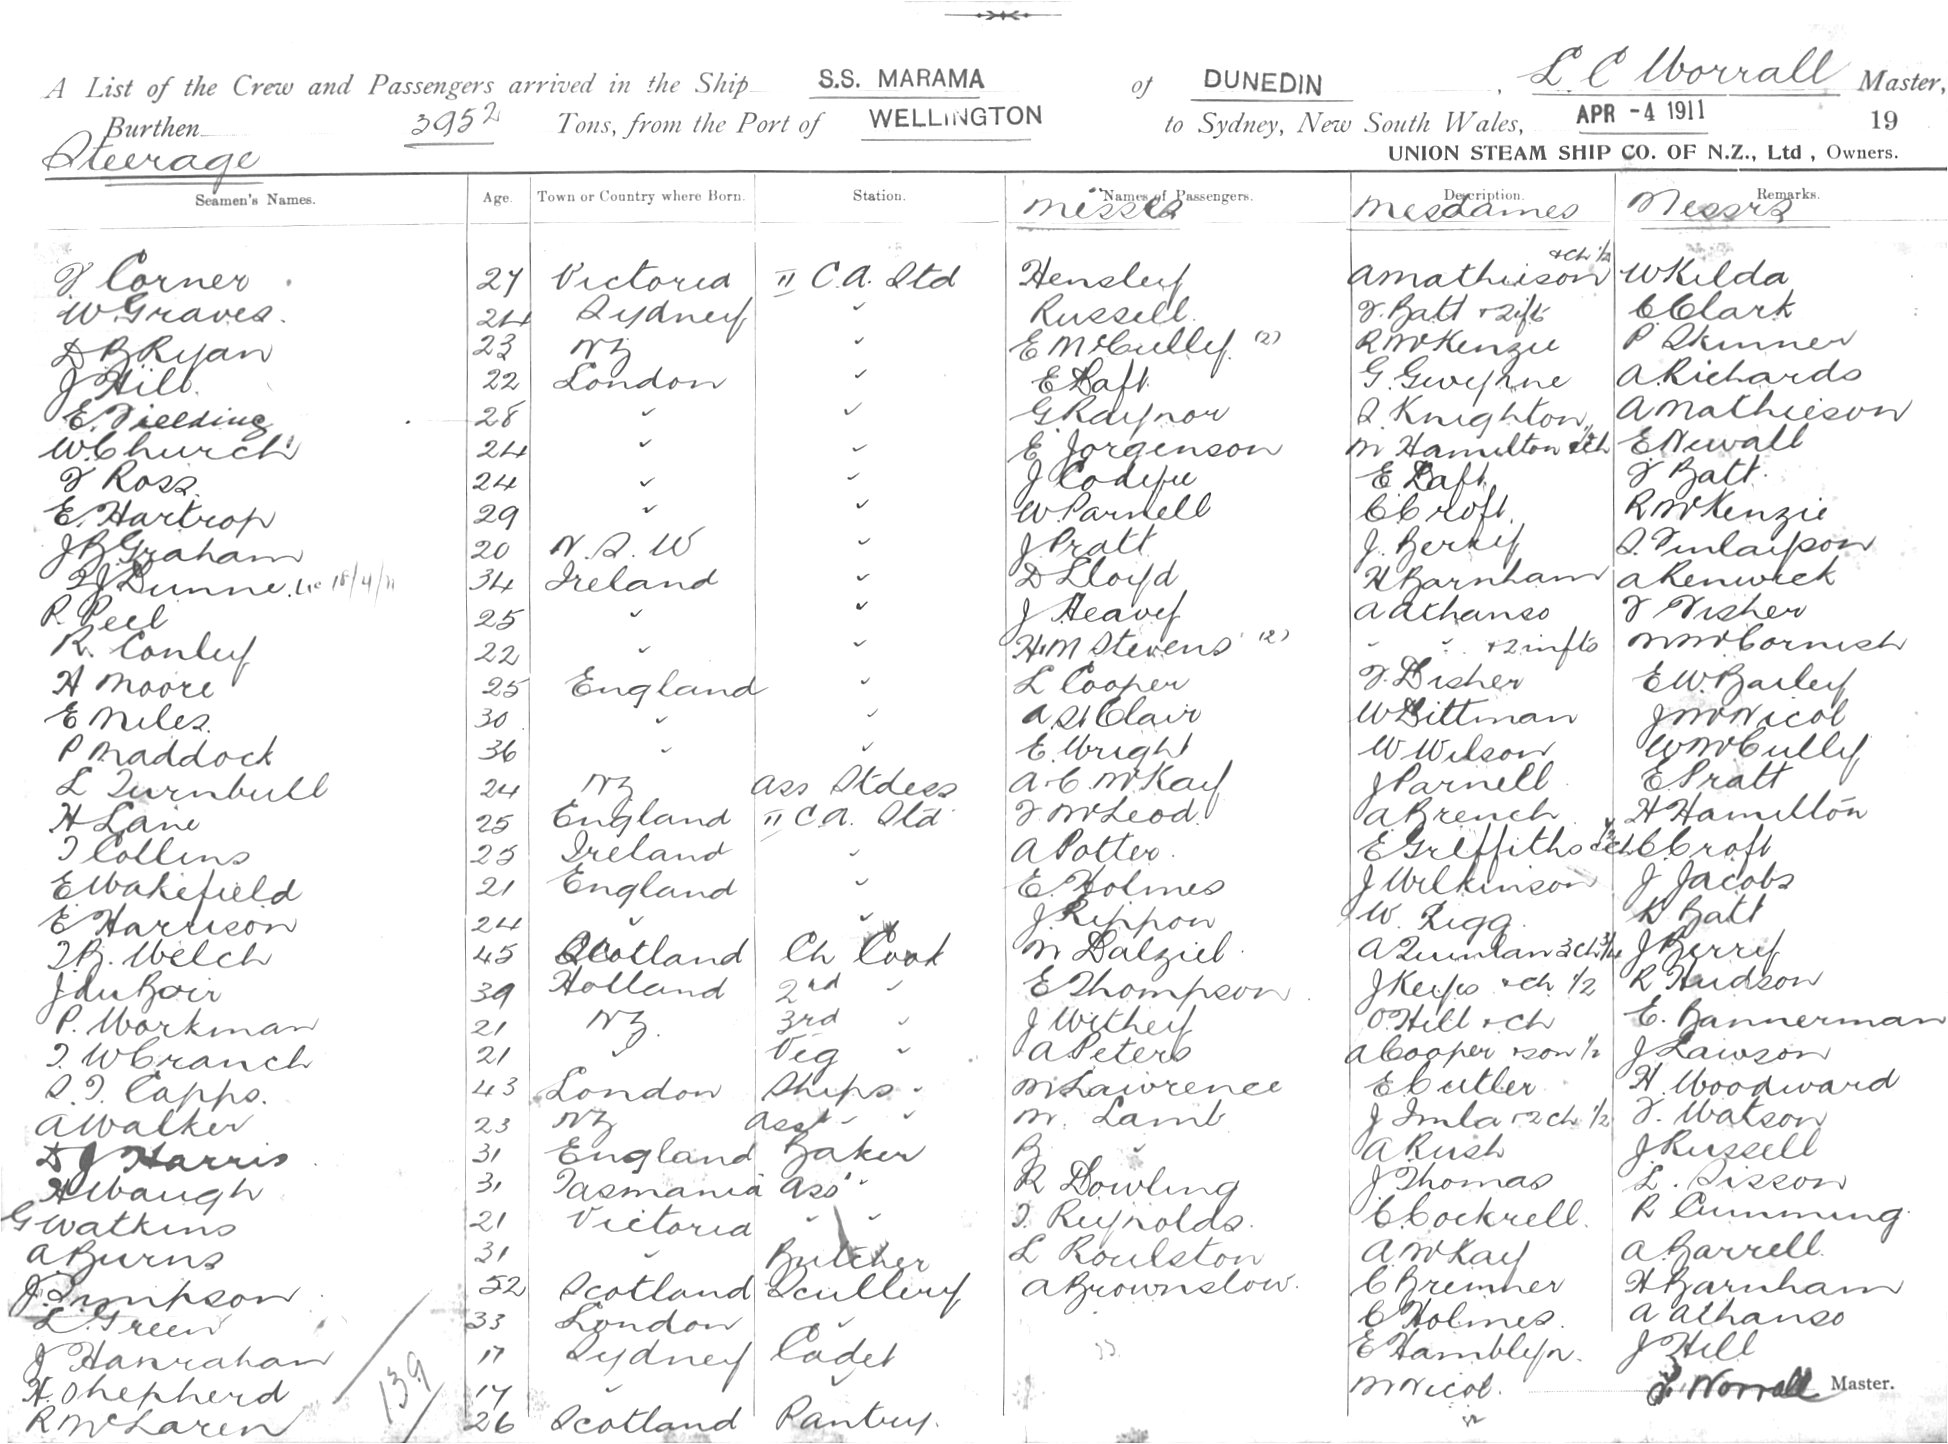 A List of the Crew and Passengers arrived in the Ship S.S. MARAMA of DUNEDIN, L C Worrall Master,
Burthen 3952 Tons, from the Port of WELLINGTON to Sydney, New South Wales, APR -4 1911 19
Steerage UNION STEAM SHIP CO. OF N.Z., Ltd, Owners.
Seamen's Names. Age. Town or Country where Born. Station. Names of Passengers. Description. Remarks.
Misses Mesdames Messrs
F Corner 27 Victoria II C.A. Std Hensley A Mathieson + Ch 1/2 W Kilda
W Graves. 24 Sydney " Russell. F. Batt + 2 ifts C Clark
D B Ryan 23 NZ " E McCully (2) R McKenzie P Skinner
J Hill. 22 London " E Daft G. Gwynne A. Richards
E. Fielding 28 " " G Raynor S. Knighton A Mathieson
W. Church 24 " " E Jorgenson M Hamilton & ch E Newall
F Ross. 24 " " J E Daft. F Batt.
E. Hartrop 29 " " W Parnell C Croft. R McKenzie
J B Graham 20 N. S. W " J Pratt J. Berry S. Finlayson
Dunne. 18/4/11 34 Ireland " D Lloyd H Barnham A Renwick
R Peel 25 " " J Heavey A Athanso F Fisher
R. Conley 22 " " H. M Stevens (2) " " + 2 infts M McCornish
H Moore 25 England " L Cooper F. Disher E W. Bailey
E Miles. 30 " " A St Clair W Dittman J McNicol
P Maddock 36 " " E. Wright W Wilson W McCully
L Turnbull 24 NZ Ass Stdess A. C. McKay J Parnell E. Pratt
H Lane 25 England II C.A. Std F. McLeod. A Brench H Hamilton
T Collins 25 Ireland " A Potter. E Griffiths & ch C. Croft
E Wakefield 21 England " E. Holmes J Wilkinson J Jacobs
E Harrison 24 " " J. Rippon W. Rigg. D Batt
T. B. Welch 45 Scotland Ch Cook M Dalziel. A Quinlan 3 ch 3/4 J Berry
J du Boir 39 Holland 2nd " E Thompson J Keys + ch 1/2 R Hudson
P. Workman 21 NZ. 3rd " J Withey O. Hill + ch E. Bannerman
T. W Cranch 21 " Veg " A Peters A Cooper + son 1/2 J Lawson
S. T. Capps. 43 London Ships " M Lawrence E Cutler H. Woodward
A Walker 23 NZ Ass " " M. Lamb J Imla + 2 ch 1/2 F. Watson
D J Harris 31 England Baker B " A Rush J Russell
H Waugh 31 Tasmania Ass " R Dowling J Thomas L. Sisson
G Watkins 21 Victoria " " T. Reynolds. C. Cockrell. R Cumming
A Burns 31 " Butcher L Roulston A. McKay A. Barrell.
J. Simpson 52 Scotland Scullery A Brownslow. C Bremner H Barnham
L. Green 33 London " C Holmes. A Athanso
J Hanrahan 17 Sydney Cadet E Hamblyn. J Hill
H. Shepherd 17 " " M Nicol. L Worrall Master.
R McLaren 26 Scotland Pantry.
139